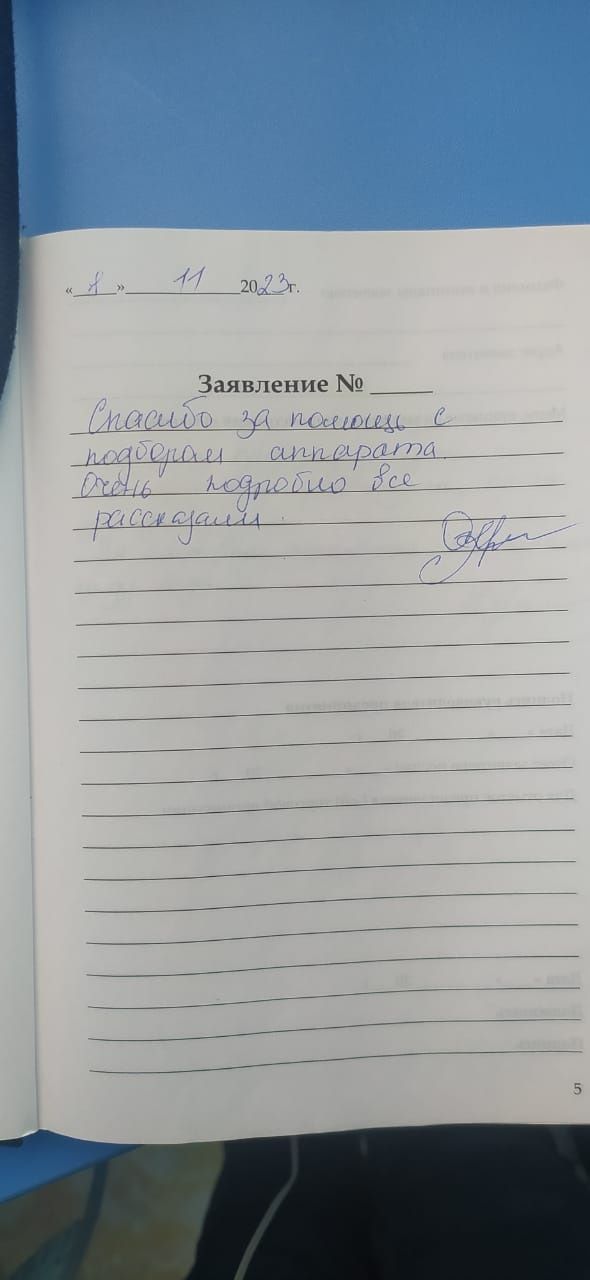 « 8 » 11 2023г.
Заявление № _____
Спасибо за помощь с
подбором аппарата.
Очень подробно все
рассказали.
5